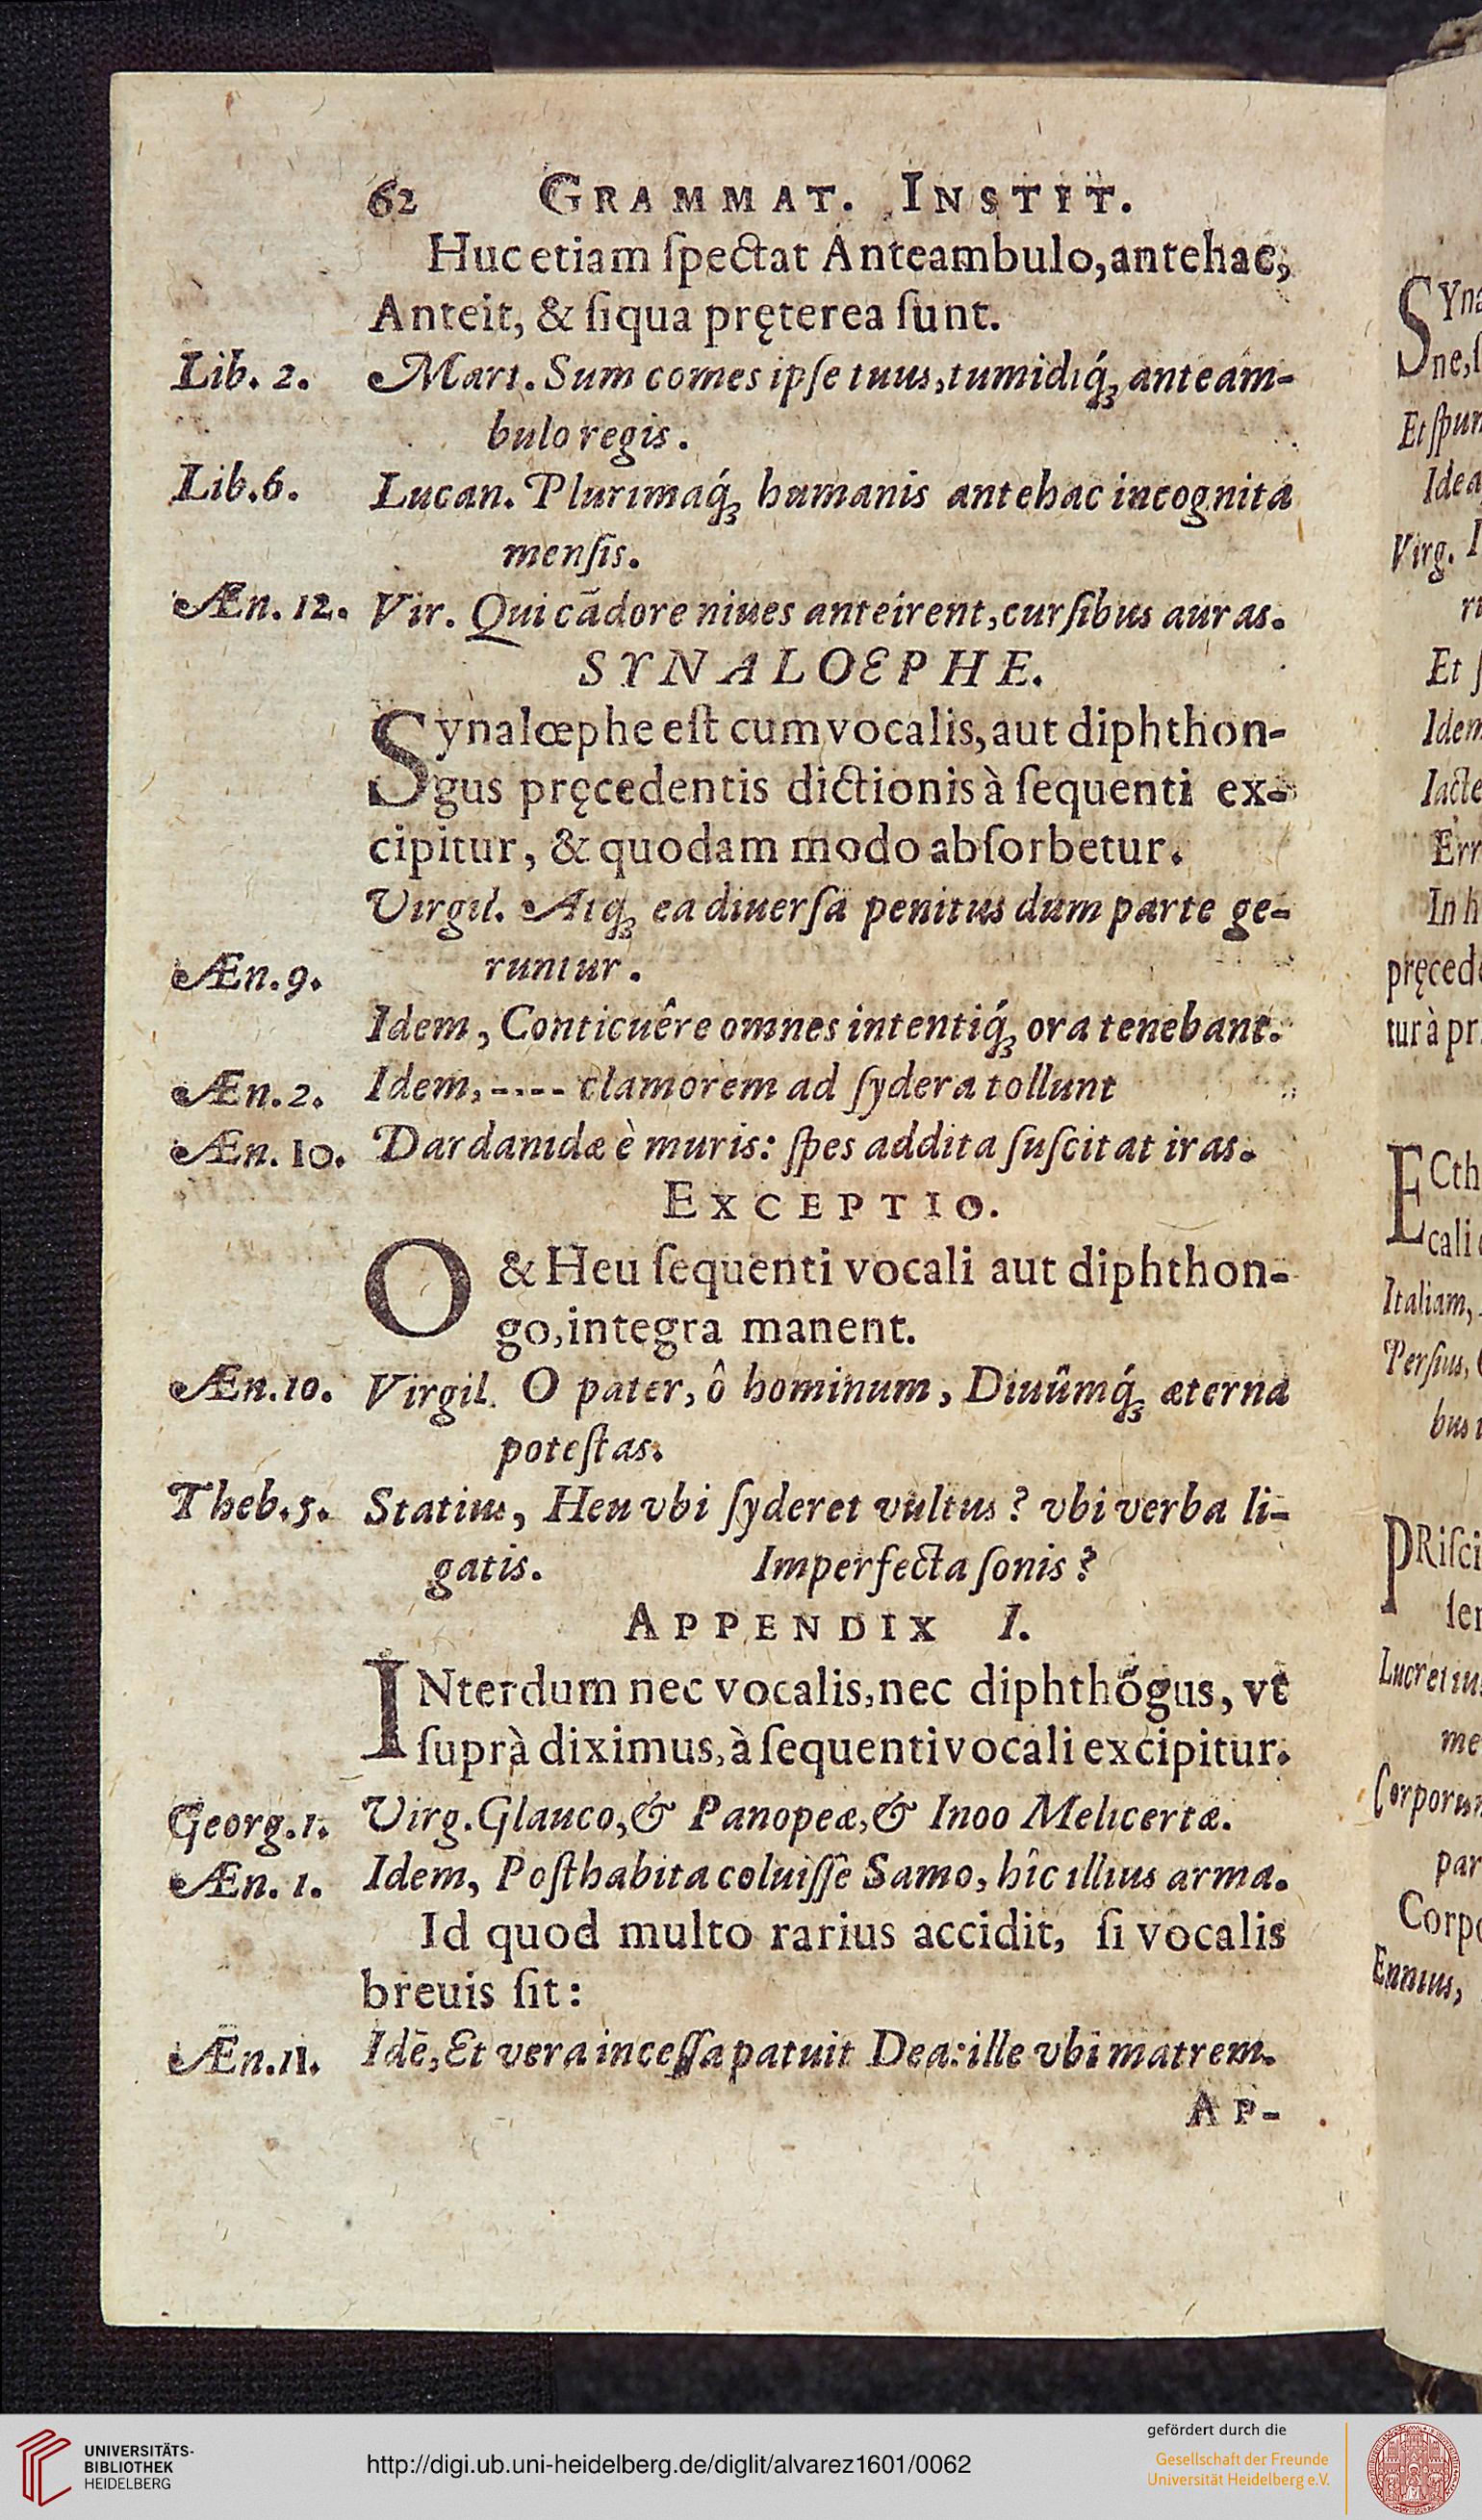 62 GRAMMAT. INSTIT.
Huc etiam ſpectat Anteambulo, antehac,
Anteit, & ſiqua pręterea ſunt.
Lib. 2. Mart. Sum comes ipſe tuus, tumidiq́; anteam-
bulo regis.
Lib. 6. Lucan. Plurimaq́; humanis antehac incognita
menſis.
Æn. 12. Vir. Qui cãdore niues anteirent, curſibus auras.
SYNALOEPHE.
Synalœphe eſt cum vocalis, aut diphthon-
gus pręcedentis dictionis à ſequenti ex-
cipitur, & quodam modo abſorbetur.
Virgil. Atq; ea diuerſa penitus dum parte ge-
Æn. 9. runtur.
Idem, Conticuêre omnes intentiq́; ora tenebant.
Æn. 2. Idem, ---- clamorem ad ſydera tollunt
Æn. 10. Dardanidæ è muris: ſpes addita ſuſcitat iras.
EXCEPTIO.
O & Heu ſequenti vocali aut diphthon-
go, integra manent.
Æn. 10. Virgil. O pater, ô hominum, Diuûmq́; æterna
poteſtas.
Theb. 5. Statius, Heu vbi ſyderei vultus? vbi verba li-
gatis. Imperfecta ſonis?
APPENDIX I.
INterdum nec vocalis, nec diphthõgus, vt
ſuprà diximus, à ſequenti vocali excipitur.
Georg. 1. Virg. Glauco, & Panopeæ, & Inoo Melicertæ.
Æn. 1. Idem, Poſthabita coluiſſe Samo, hîc illius arma.
Id quod multo rarius accidit, ſi vocalis
breuis ſit:
Æn. 11. Idẽ, Et vera inceſſa patuit Dea: ille vbi matrem.
AP-
UNIVERSITÄTS-
BIBLIOTHEK
HEIDELBERG
http://digi.ub.uni-heidelberg.de/diglit/alvarez1601/0062
gefördert durch die
Gesellschaft der Freunde
Universität Heidelberg e.V.